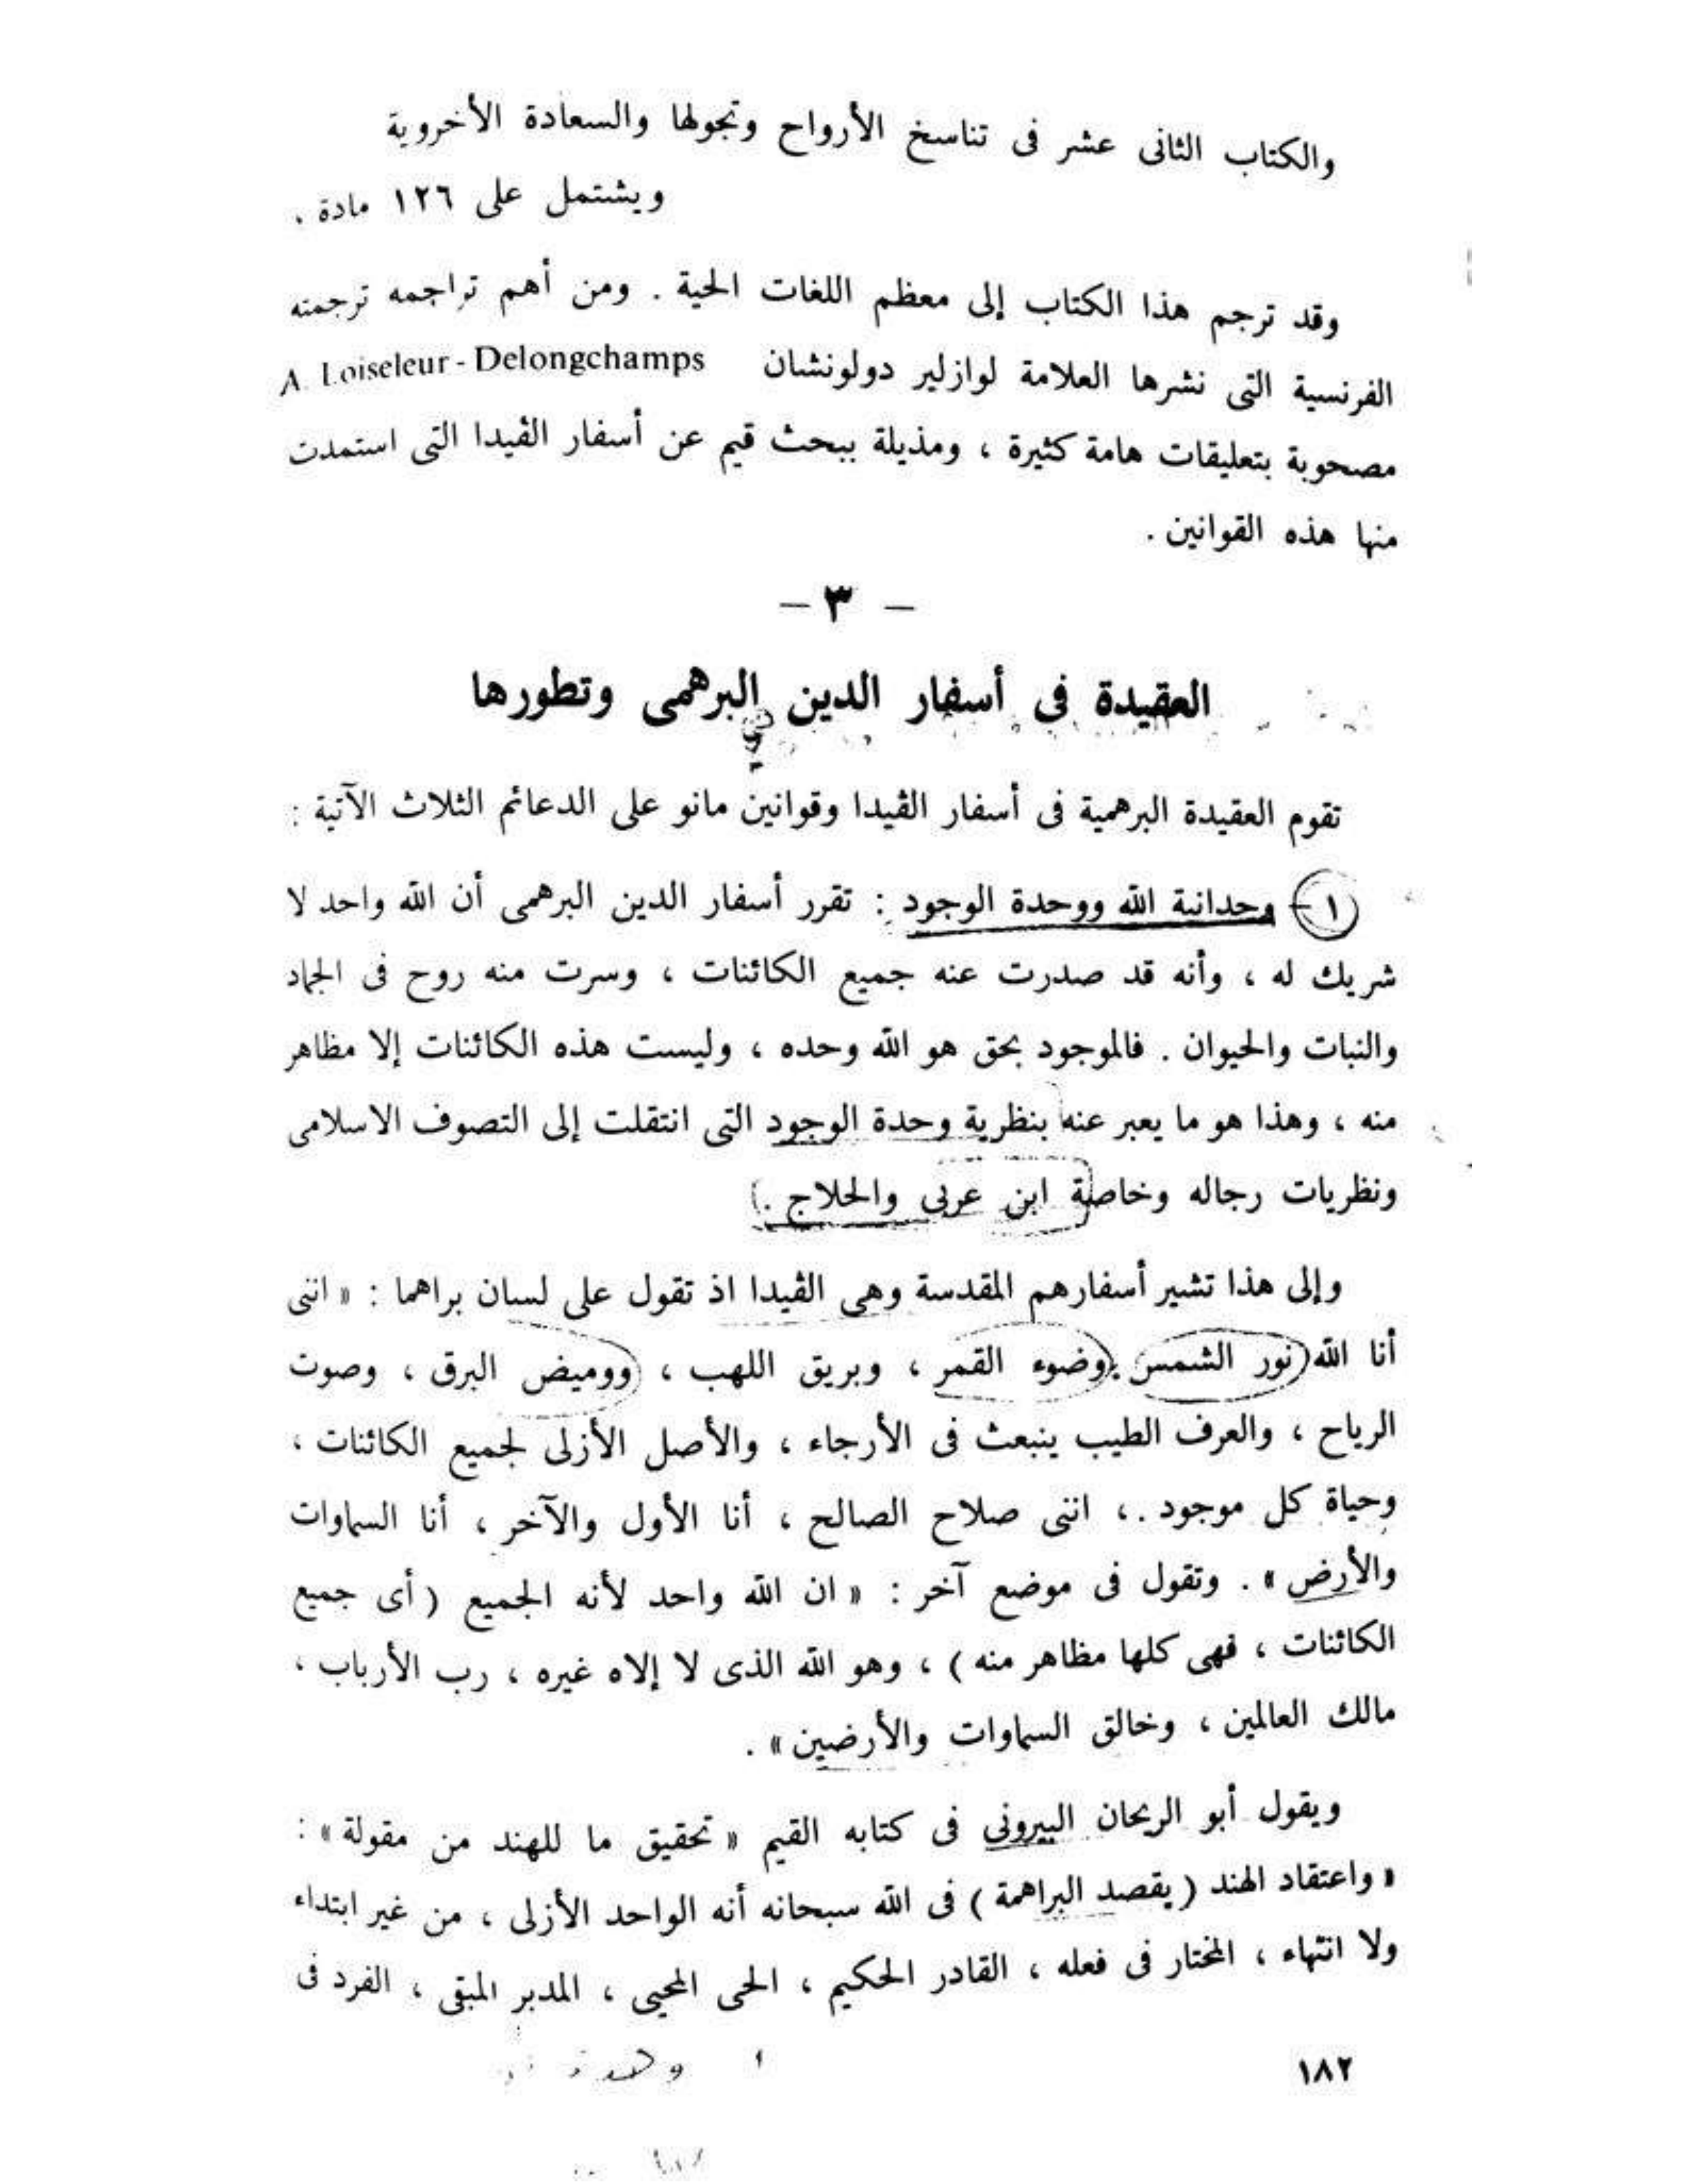 والكتاب الثانى عشر فى تناسخ الأرواح وتجولها والسعادة الأخروية
ويشتمل على ١٢٦ مادة .
وقد ترجم هذا الكتاب إلى معظم اللغات الحية . ومن أهم تراجمه ترجمته
الفرنسية التى نشرها العلامة لوازلير دولونشان A. Loiseleur - Delongchamps
مصحوبة بتعليقات هامة كثيرة ، ومذيلة ببحث قيم عن أسفار الڤيدا التى استمدت
منها هذه القوانين .
- ٣ -
العقيدة فى أسفار الدين البرهمى وتطورها
تقوم العقيدة البرهمية فى أسفار الڤيدا وقوانين مانو على الدعائم الثلاث الآتية :
١ - وحدانية الله ووحدة الوجود : تقرر أسفار الدين البرهمى أن الله واحد لا
شريك له ، وأنه قد صدرت عنه جميع الكائنات ، وسرت منه روح فى الجماد
والنبات والحيوان . فالموجود بحق هو الله وحده ، وليست هذه الكائنات إلا مظاهر
منه ، وهذا هو ما يعبر عنه بنظرية وحدة الوجود التى انتقلت إلى التصوف الاسلامى
ونظريات رجاله وخاصة ابن عربى والحلاج .
وإلى هذا تشير أسفارهم المقدسة وهى الڤيدا اذ تقول على لسان براهما : « اننى
أنا الله نور الشمس وضوء القمر ، وبريق اللهب ، ووميض البرق ، وصوت
الرياح ، والعرف الطيب ينبعث فى الأرجاء ، والأصل الأزلى لجميع الكائنات ،
وحياة كل موجود .، اننى صلاح الصالح ، أنا الأول والآخر ، أنا السماوات
والأرض » . وتقول فى موضع آخر : « ان الله واحد لأنه الجميع ( أى جميع
الكائنات ، فهى كلها مظاهر منه ) ، وهو الله الذى لا إلاه غيره ، رب الأرباب ،
مالك العالمين ، وخالق السماوات والأرضين » .
ويقول أبو الريحان البيرونى فى كتابه القيم « تحقيق ما للهند من مقولة » :
« واعتقاد الهند ( يقصد البراهمة ) فى الله سبحانه أنه الواحد الأزلى ، من غير ابتداء
ولا انتهاء ، المختار فى فعله ، القادر الحكيم ، الحى المحيى ، المدبر المبقى ، الفرد فى
١٨٢